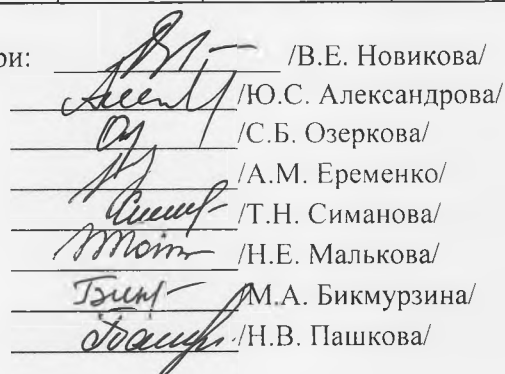 ри: /В.Е. Новикова/
/Ю.С. Александрова/
/С.Б. Озеркова/
/А.М. Еременко/
/Т.Н. Симанова/
/Н.Е. Малькова/
/М.А. Бикмурзина/
/Н.В. Пашкова/